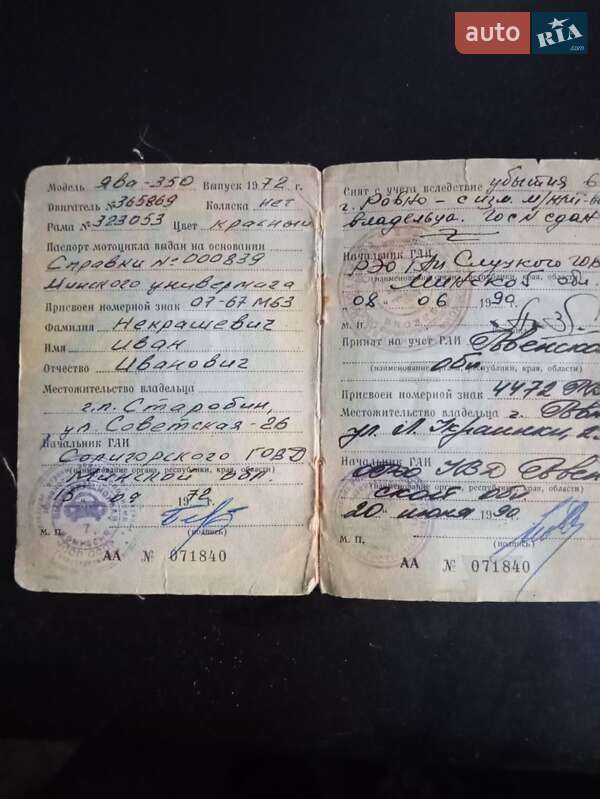 auto RIA
.com
Модель Ява-350 Выпуск 1972 г.
Двигатель №365869 Коляска нет
Рама №323053 Цвет красный
Паспорт мотоцикла выдан на основании
Справки №000839
Минского универмага
Присвоен номерной знак 07-67 МБЗ
Фамилия Некрашевич
Имя Иван
Отчество Иванович
Местожительство владельца
г.п. Старобин,
ул. Советская-26
Начальник ГАИ
Солигорского ГОВД
(наименование органа, республики, края, области)
Минской обл.
15 09 1972
М. П. (подпись)
АА № 071840
Снят с учета вследствие убытия в
г. Ровно - с изм. м/жит-
владельца. Госн сдан
Начальник ГАИ
РЭО ГАИ Слуцкого гор
(наименование органа, республики, края, области)
Минской обл.
08 06 1990
М. П.
Принят на учет ГАИ Ровенско
обл.
(наименование органа, республики, края, области)
Присвоен номерной знак 4472
Местожительство владельца г. Ров
ул. Л. Украинки, 2
Начальник ГАИ
УВД Ровен
(наименование органа, республики, края, области)
ской обл
20 июня 1990
М. П. (подпись)
АА № 071840